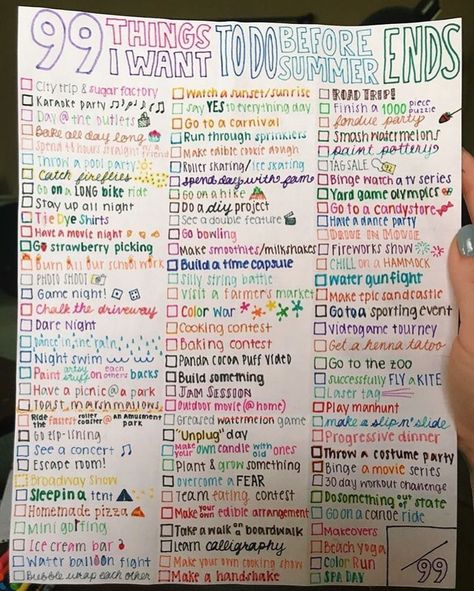 99 THINGS I WANT TO DO BEFORE SUMMER ENDS
City trip & sugar factory
Karaoke party
Day @ the outlets
Bake all day long
Spend 48 hours straight
Throw a pool party
Catch fireflies
Go on a LONG bike ride
Stay up all night
Tie Dye Shirts
Have a movie night
Go strawberry picking
Burn all our school work
PHOTO SHOOT
Game night!
Chalk the driveway
Dare Night
Dance in the rain
Night swim
Paint artsy stuff on each others backs
Have a picnic @ a park
Toast marshmallows
Ride the fastest roller coaster @ an amusement park
Go zip-lining
See a concert
Escape room!
Broadway Show
Sleep in a tent
Homemade pizza
Mini golfing
Ice cream bar
Water balloon fight
Bubble wrap each other
Watch a sunset/sunrise
say YES to everything day
Go to a carnival
Run through sprinklers
Make edible cookie dough
Roller skating/ice skating
spend day with fam
Go on a hike
Do a diy project
See a double feature
Go bowling
Make smoothies/milkshakes
Build a time capsule
Silly string battle
Visit a farmer's market
Color war
Cooking contest
Baking contest
Panda Cocoa Puff Video
Build something
JAM SESSION
Outdoor movie (@ home)
Greased watermelon game
"Unplug" day
Make your own candle with old ones
Plant & grow something
overcome a FEAR
Team eating contest
Make your own edible arrangement
Take a walk on a boardwalk
Learn calligraphy
Make your own cooking show
Make a handshake
ROAD TRIP!
Finish a 1000 piece puzzle
fondue party
Smash watermelons
paint pottery
TAG SALE
Binge watch a tv series
Yard game olympics
Go to a candy store
Have a dance party
DRIVE IN MOVIE
Fireworks show
CHILL on a HAMMOCK
Water gun fight
Make epic sandcastle
Go to a sporting event
Videogame tourney
Get a henna tatoo
Go to the zoo
successfully FLY a KITE
Laser tag
Play manhunt
make a slip n' slide
Progressive dinner
Throw a costume party
Binge a movie series
30 day workout challenge
Do something out of state
Go on a canoe ride
Makeovers
Beach yoga
Color Run
SPA DAY
/99